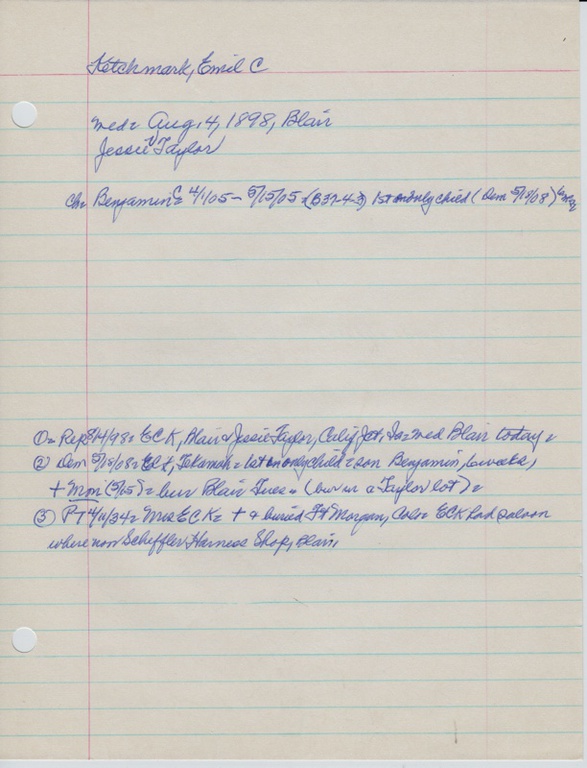 Ketchmark, Emil C
med= Aug. 4, 1898, Blair
Jessie Taylor
Ch= Benjamin C= 4/1/05 - 5/15/05 (B37-4-3) 1st & only child (Dem 5/18/08)
① = Rep 8/4/98= ECK, Blair & Jessie Taylor, Calif Jct, Ia= med Blair today=
② Dem 5/18/08= ECK, Tekamah= lost only child= son Benjamin, 6 weeks,
+ Mon (5/05)= bur Blair Tues= (bur in a Taylor lot)=
③ PT 4/11/34= Mrs ECK= + & buried Ft Morgan, Colo= ECK had saloon
where now Scheffler Harness Shop, Blair,